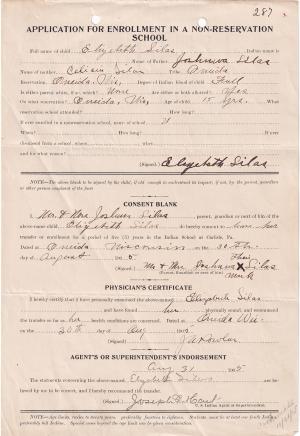 287
APPLICATION FOR ENROLLMENT IN A NON-RESERVATION
SCHOOL
Full name of child Elizabeth Silas Indian name is
Name of Father, Joshuwa Silas
Name of mother, Silas Tribe Oneida
Reservation, Oneida, Wis, Degree of Indian blood of child Full
Is either parent white, if so, which? None Are either or both allotted? Yes
On what reservation? Oneida, Wis, Age of child 15 yrs. What
reservation school attended? How long?
If ever enrolled in a nonreservation school, name of
When? How long? If ever
discharged from a school, when
and for what reason?
(Signed) Elizabeth Silas
NOTE—The above blank to be signed by the child, if old enough to understand its import; if not, by the parent, guardian or other person
CONSENT BLANK
I, Mr. & Mrs Joshuwa Silas parent, guardian or next of kin of the
above-named child, Elizabeth Silas do hereby consent to have her
transfer or enrollment for a period of five (5) years in the Indian School at Carlisle, Pa.
Dated at Oneida Wisconsin the 30 th
day of August 5
their
(Signed) Mr & Mrs Joshuwa X Silas
mark
(Parent, Guardian or next of kin)
PHYSICIAN'S CERTIFICATE
I hereby certify that I have personally examined the above-named Elizabeth Silas
and have found her physically sound, and recommend
the transfer so far as her health conditions are concerned. Dated at Oneida Wis
on the 30th day Aug 1905
(Signed)
AGENT'S OR SUPERINTENDENT'S INDORSEMENT
Aug 31 1905
The statements concerning the above-named Elizabeth Silas are be-
lieved by me to be correct, and I hereby recommend the transfer.
(Signed) Joseph C. Hart
U. S. Indian Agent or Superintendent.